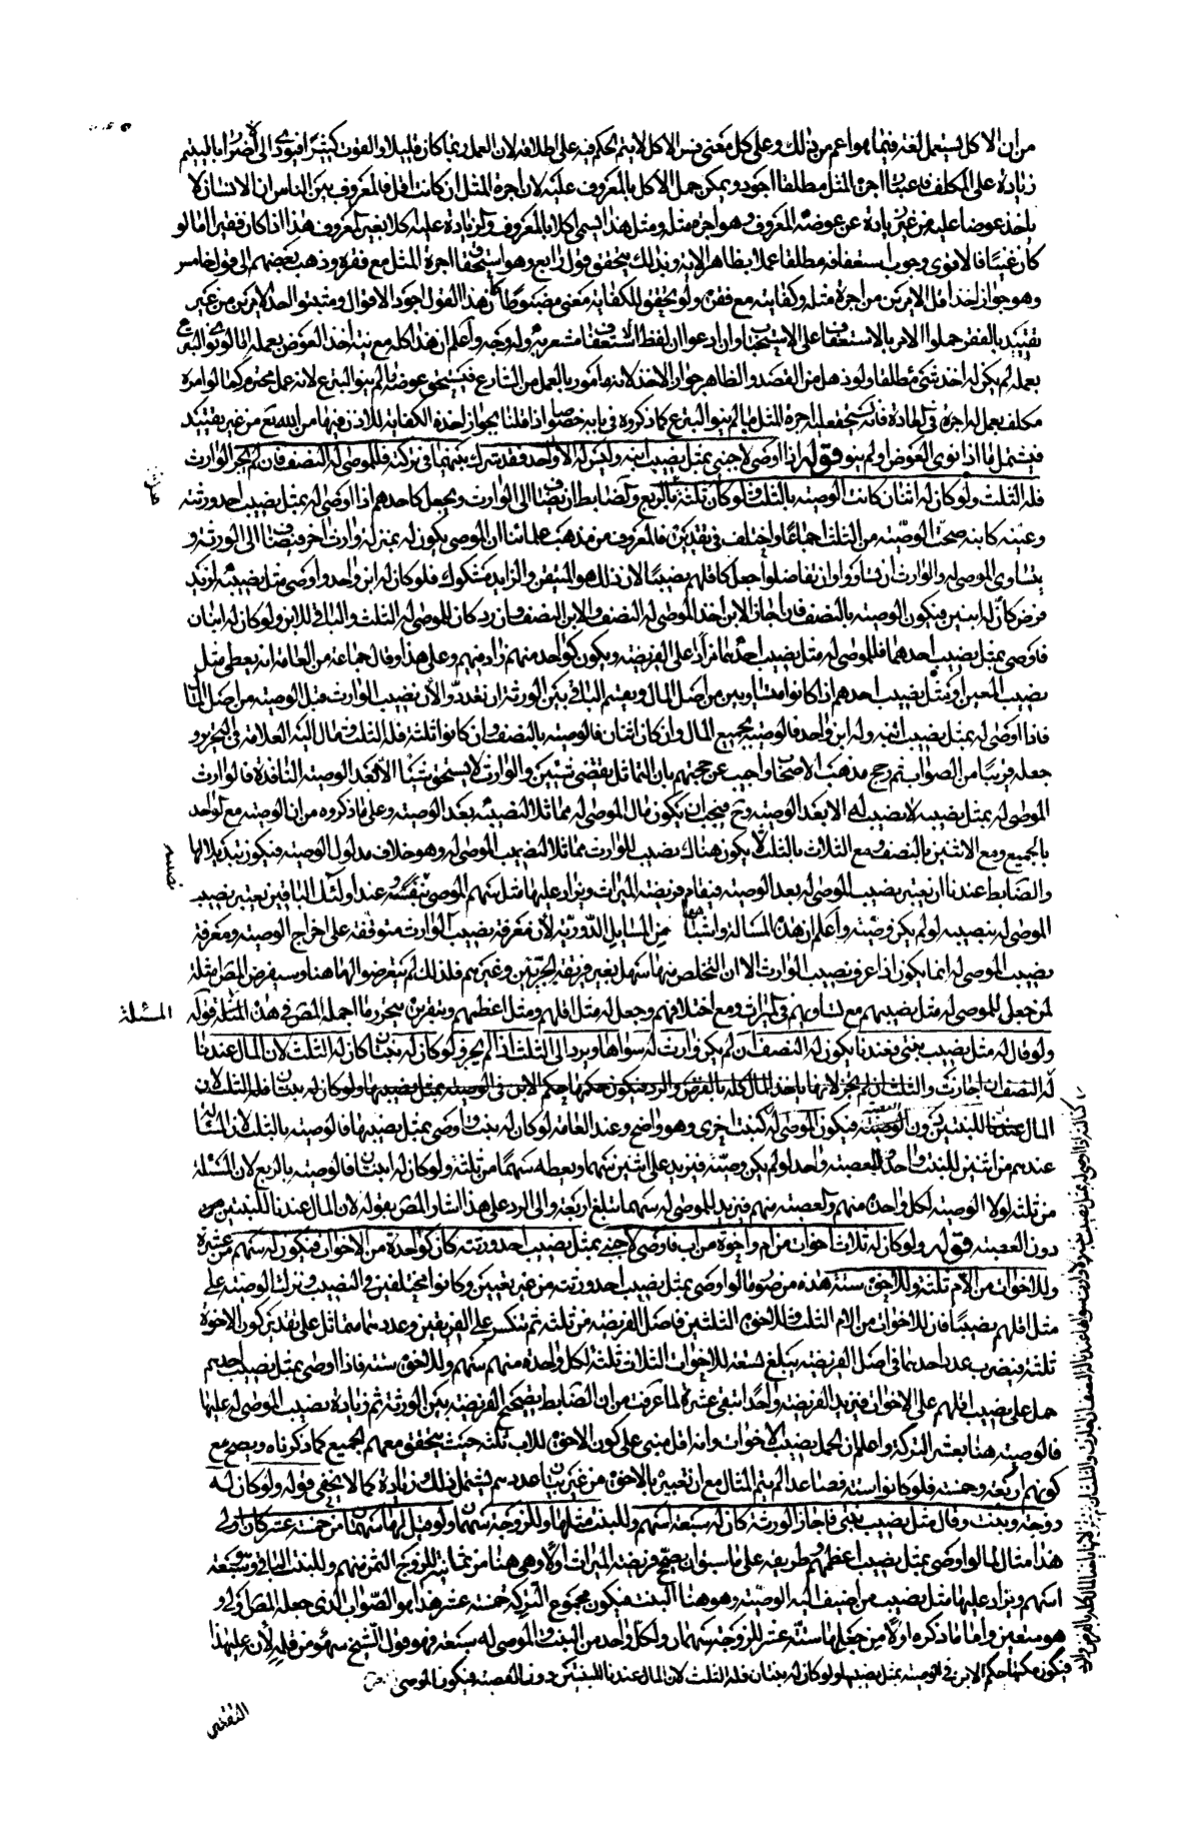 من ان الاكل يستعمل لغة فيما هو اعم من ذلك وعلى كل معنى فسر الاكل لا يتم الحكم فيه على اطلاقه لان العمل ربما كان قليلا والقوت كثيرا فيؤدى الى الاضرار باليتيم
زيادة على المكلف فاعتبار اجرة المثل مطلقا اجود ويمكن حمل الاكل بالمعروف عليه لان اجرة المثل ان كانت اقل فالمعروف بين الناس ان الانسان لا
ياخذ عوضا عليه من غير زيادة عن عوضه المعروف وهو اجرة مثله ومثل هذا يسمى اكلا بالمعروف والزيادة عليه اكلا بغير المعروف هذا اذا كان فقيرا اما لو
كان غنيا فالاقوى وجوب استعفافه مطلقا عملا بظاهر الاية وبذلك يتحقق قول رابع وهو استحقاق اجرة المثل مع فقره وذهب بعضهم الى قول خامس
وهو جواز اخذ اقل الامرين من اجرة مثله وكفايته مع فقره ولو تحقق للكفاية معنى مضبوطا كان هذا القول اجود الاقوال ومثبتوا احد الامرين من غير
تقييد بالفقر حملوا الامر بالاستعفاف على الاستحباب وان ادعوا ان لفظ الاستعفاف مشعر به وله وجه واعلم ان هذا كله مع نية اخذ العوض بعمله اما لو نوى التبرع
بعمله لم يكن له اخذ شئ مطلقا ولو ذهل عن القصد فالظاهر جواز الاخذ لانه مامور بالعمل من الشارع فيستحق عوضه ما لم ينو التبرع لانه عمل محترم كما لو امره
مكلف بعمل له اجرة فى العادة فانه يستحق عليه اجرة المثل ما لم ينو التبرع كما ذكروه فى بابه خصوصا اذا قلنا بجواز اخذه الكفاية للاذن فيها من الله تع من غير تقييد
فيشمل ما اذا نوى العوض او لم ينو قوله اذا اوصى لاجنبى بمثل نصيب ابنه وليس له الا واحد فقد شرك بينهما فى تركته فللموصى له النصف فان لم يجز الوارث
فله الثلث ولو كان له اثنان كانت الوصية بالثلث ولو كان ثلثة بالربع والضابط ان يضاف الى الوارث ويجعل كاحدهم اذا اوصى له بمثل نصيب احد ورثته
وعينه كابنه صحت الوصية من الثلث اجماعا واختلف فى تقديره فالمعروف من مذهب علمائنا ان الموصى له يكون بمنزلة وارث اخر فيضاف الى الورثة و
يتساوى الموصى له والوارث ان تساووا وان تفاضلوا جعل كاقلهم نصيبا لان ذلك هو المتيقن والزايد مشكوك فلو كان له ابن واحد واوصى بمثل نصيبه لزيد
فرض كان له ابنين فيكون الوصية بالنصف فان اجاز الابن اخذ الموصى له النصف والابن النصف وان رد كان للموصى له الثلث والباقى للابن ولو كان له ابنان
فاوصى بمثل نصيب احدهما فللموصى له مثل نصيب احدهما مزادا على الفريضة ويكون كواحد منهم زاد فيهم وعلى هذا وقال جماعة من العامة انه يعطى مثل
نصيب المعين او مثل نصيب احدهم اذا كانوا متساويين من اصل المال ويقسم الباقى بين الورثة ان تعددوا لان نصيب الوارث قبل الوصية من اصل المال
فاذا اوصى له بمثل نصيب ابنه وله ابن واحد فالوصية بجميع المال وان كان اثنان فالوصية بالنصف وان كانوا ثلثة فله الثلث ومال اليه العلامة فى التحرير و
جعله قريبا من الصواب ثم رجح مذهب الاصحاب واجيب عن حجتهم بان التماثل يقتضى شيئين والوارث لا يستحق شيئا الا بعد الوصية النافذة فالوارث
الموصى له بمثل نصيبه لا نصيب له الا بعد الوصية وح فيجب ان يكون مال الموصى له مماثلا لنصيبه بعد الوصية وعلى ما ذكروه من ان الوصية مع الواحد
بالجميع ومع الاثنين بالنصف ومع الثلاث بالثلث لا يكون هناك نصيب للوارث مماثلا لنصيب الموصى له وهو خلاف مدلول الوصية فيكون تبديلا لها
والضابط عندنا ان يعتبر نصيب الموصى له بعد الوصية فيقام فريضة الميراث ويزاد عليها مثل سهم الموصى بنصيبه وعند اولئك الباقين يعتبر نصيب
الموصى له بنصيبه لو لم يكن وصية واعلم ان هذه المسالة واشباهها من المسايل الدورية لان معرفة نصيب الوارث متوقفة على اخراج الوصية ومعرفة
نصيب الموصى له انما يكون اذا عرف نصيب الوارث الا ان التخلص منها سهل بغير طريقة الجبريين وغيرهم فلذلك لم يتعرضوا لها هنا وسيفرض المص امثلة
لمن جعل للموصى له مثل نصيبهم مع تساويهم فى الميراث ومع اختلافهم وجعل له مثل اقلهم ومثل اعظمهم وبتقريره يتحرر ما اجمله المص فى هذه المسئلة قوله
ولو قال له مثل نصيب بنتى فعندنا يكون له النصف ان لم يكن وارث له سواها ويرد الى الثلث اذا لم يجز ولو كان له بنتان كان له الثلث لان المال عندنا
له النصف ان اجازت والثلث ان لم يجز لانها ياخذ المال كله بالفرض والرد فيكون حكمها حكم الابن فى الوصية بمثل نصيبها ولو كان له بنتان فله الثلث لان
المال عندنا للبنتين دون العصبة فيكون الموصى له كبنت اخرى وهو واضح وعند العامة لو كان له بنت واوصى بمثل نصيبها فالوصية بالثلث لان المسئلة
عندهم من اثنين للبنت واحد وللعصبة واحد لو لم يكن وصية فتزيد على اثنين سهما ويعطيه سهما من ثلثة ولو كان له ابنتان فالوصية بالربع لان المسئلة
من ثلثة لولا الوصية لكل واحدة منهم وللعصبة سهم فتزيد للموصى له سهما تبلغ اربعة والى الرد على هذا اشار المص بقوله لان المال عندنا للبنتين
دون العصبة قوله ولو كان له ثلاث اخوات من ام واخوة من اب فاوصى لاجنبى بمثل نصيب احد ورثته كان كواحدة من الاخوات فيكون له سهم من عشرة
وللاخوات من الام ثلثة وللاخوة ستة هذه من صور ما لو اوصى بمثل نصيب احد ورثته من غير تعيين وكانوا مختلفين فى النصيب وتنزل الوصية على
مثل اقلهم نصيبا فان للاخوات من الام الثلث وللاخوة الثلثين فاصل الفريضة من ثلثة ثم تنكسر على الفريقين وعددهما متماثل على تقدير كون الاخوة
ثلثة فيضرب عدد احدهما فى اصل الفريضة يبلغ تسعة للاخوات الثلاث ثلثة لكل واحدة منهم سهم وللاخوة ستة فاذا اوصى بمثل نصيب احدهم
حمل على نصيب اقلهم على الاخوات فتزيد الفريضة واحدا تبقى عشرة لما عرفت من ان الضابط تصحيح الفريضة بين الورثة ثم زيادة نصيب الموصى له عليها
فالوصية هنا بعشر التركة واعلم ان الحمل بنصيب الاخوات وانه اقل مبنى على كون الاخوة للاب ثلثة حيث يتحقق معهم الجميع كما ذكرناه ويصح مع
كونهم اربعة وخمسة فلو كانوا ستة فصاعدا لم يتم المثال مع ان تعبيره بالاخوة من غير بيان عددهم يشمل ذلك وزيادة كما لا يخفى قوله ولو كان له
زوجة وبنت وقال مثل نصيب بنتى فاجاز الورثة كان له سبعة اسهم وللبنت مثلها وللزوجة سهمان ولو قيل لها سهم من خمسة عشر كان اولى
هذا مثال لما لو اوصى بمثل نصيب اعظمهم وطريقه على ما سبق ان يصح فريضة الميراث اولا وهى هنا من ثمانية للزوجة الثمن سهم وللبنت الباقى وهو سبعة
اسهم ويزاد عليها مثل نصيب من اضيف اليه الوصية وهو هنا البنت فيكون مجموع التركة خمسة عشر هذا هو الصواب الذى جعله المص اولى و
هو متعين واما ما ذكره اولا من جعلها ستة عشر للزوجة سهمان ولكل واحد من البنت والموصى له سبعة فهو قول الشيخ وهو سهو من قلمه لان عليهذا
فيكون حكمها حكم الابن فى الوصية بمثل نصيبها ولو كان له بنتان فله الثلث لان المال عندنا للبنتين دون العصبة فيكون الموصى
المسئلة